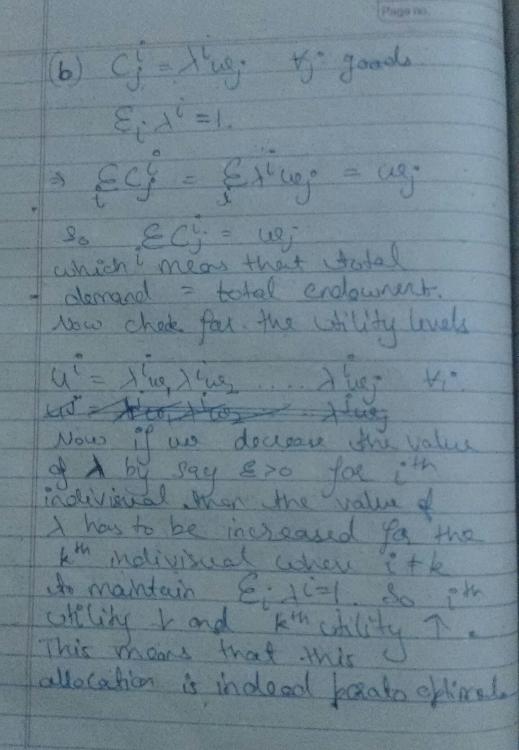 Page no.
(b) C_j^i = λ^i ω_j ∀j goods
Σ_i λ^i = 1.
⇒ Σ_i C_j^i = Σ_i λ^i ω_j = ω_j
So Σ_i C_j^i = ω_j
which meas that total
demand = total endowment.
Now check for the utility levels
u^i = λ^i ω_1 λ^i ω_2 ..... λ^i ω_j ∀i
Now if we decrease the value
of λ by say ε>0 for i^th
indivisual then the value of
λ has to be increased for the
k^th indivisual where i ≠ k
to maintain Σ_i λ^i = 1. So i^th
utility ↓ and k^th utility ↑.
This means that this
allocation is indeed parato optimal